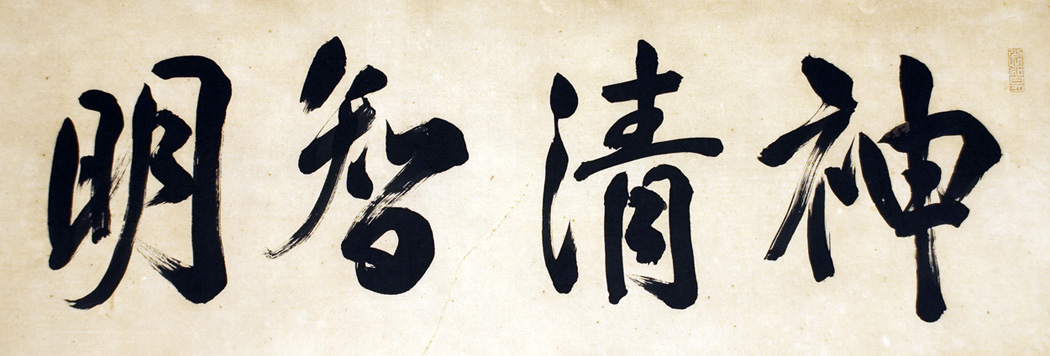 神清智明